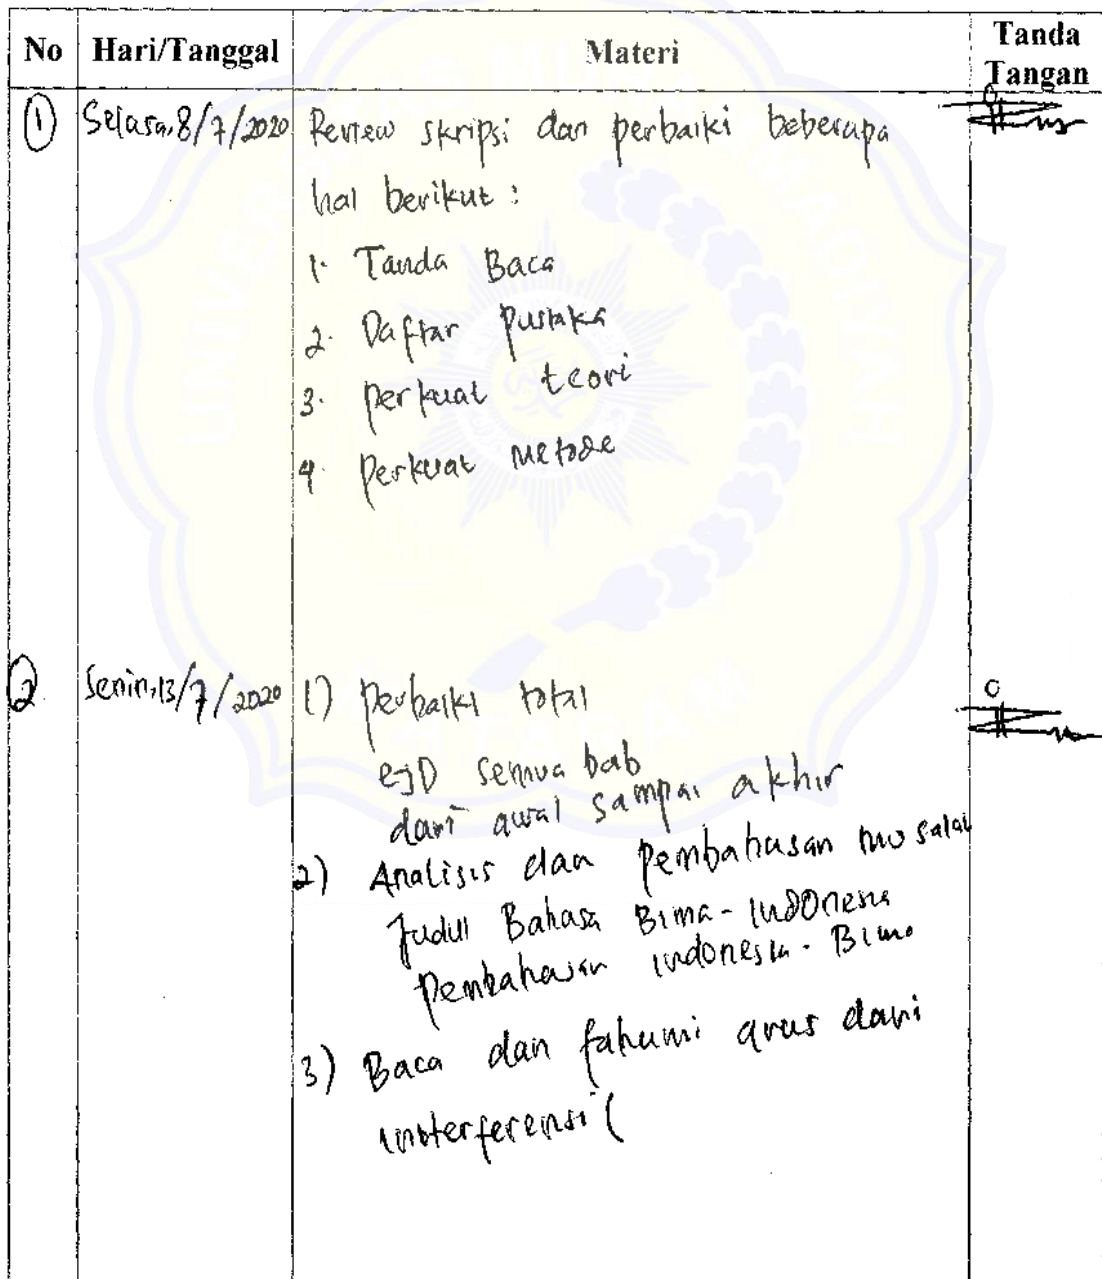 No Hari/Tanggal Materi Tanda Tangan
1 Selasa, 8/7/2020 Review skripsi dan perbaiki beberapa
hal berikut :
1. Tanda Baca
2. Daftar Pustaka
3. perkuat teori
4. Perkuat Metode
2 Senin, 13/7/2020 1) perbaiki total
EJD semua bab
dari awal sampai akhir
2) Analisis dan Pembahasan
Judul Bahasa Bima - Indonesia
Pembahasan indonesia - Bima
3) Baca dan fahami arus dari
UNIVERSITAS MUHAMMADIYAH
MATARAM